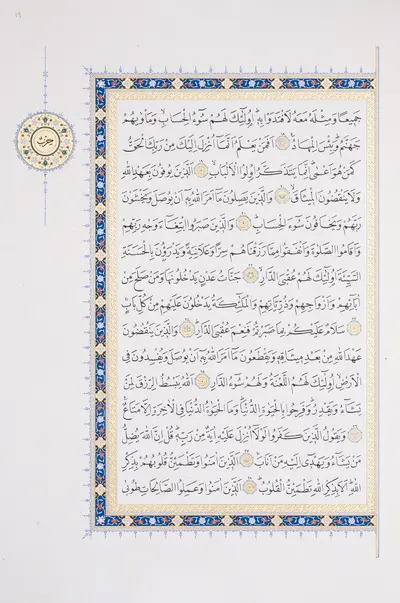 حزب
جَمِيعًا وَمِثْلَهُ مَعَهُ لَافْتَدَوْا بِهِ أُولَٰئِكَ لَهُمْ سُوءُ الْحِسَابِ وَمَأْوٰيهُمْ
جَهَنَّمُ وَبِئْسَ الْمِهَادُ أَفَمَنْ يَعْلَمُ أَنَّمَا أُنْزِلَ إِلَيْكَ مِنْ رَبِّكَ الْحَقُّ
كَمَنْ هُوَ أَعْمَىٰ إِنَّمَا يَتَذَكَّرُ أُولُوا الْأَلْبَابِ الَّذِينَ يُوفُونَ بِعَهْدِ اللَّهِ
وَلَا يَنْقُضُونَ الْمِيثَاقَ وَالَّذِينَ يَصِلُونَ مَا أَمَرَ اللَّهُ بِهِ أَنْ يُوصَلَ وَيَخْشَوْنَ
رَبَّهُمْ وَيَخَافُونَ سُوءَ الْحِسَابِ وَالَّذِينَ صَبَرُوا ابْتِغَاءَ وَجْهِ رَبِّهِمْ
وَأَقَامُوا الصَّلٰوةَ وَأَنْفَقُوا مِمَّا رَزَقْنَاهُمْ سِرًّا وَعَلَانِيَةً وَيَدْرَؤُنَ بِالْحَسَنَةِ
السَّيِّئَةَ أُولَٰئِكَ لَهُمْ عُقْبَى الدَّارِ جَنَّاتُ عَدْنٍ يَدْخُلُونَهَا وَمَنْ صَلَحَ مِنْ
آبَائِهِمْ وَأَزْوَاجِهِمْ وَذُرِّيَّاتِهِمْ وَالْمَلٰئِكَةُ يَدْخُلُونَ عَلَيْهِمْ مِنْ كُلِّ بَابٍ
سَلَامٌ عَلَيْكُمْ بِمَا صَبَرْتُمْ فَنِعْمَ عُقْبَى الدَّارِ وَالَّذِينَ يَنْقُضُونَ
عَهْدَ اللَّهِ مِنْ بَعْدِ مِيثَاقِهِ وَيَقْطَعُونَ مَا أَمَرَ اللَّهُ بِهِ أَنْ يُوصَلَ وَيُفْسِدُونَ فِي
الْأَرْضِ أُولَٰئِكَ لَهُمُ اللَّعْنَةُ وَلَهُمْ سُوءُ الدَّارِ اللَّهُ يَبْسُطُ الرِّزْقَ لِمَنْ
يَشَاءُ وَيَقْدِرُ وَفَرِحُوا بِالْحَيٰوةِ الدُّنْيَا وَمَا الْحَيٰوةُ الدُّنْيَا فِي الْآخِرَةِ إِلَّا مَتَاعٌ
وَيَقُولُ الَّذِينَ كَفَرُوا لَوْلَا أُنْزِلَ عَلَيْهِ آيَةٌ مِنْ رَبِّهِ قُلْ إِنَّ اللَّهَ يُضِلُّ
مَنْ يَشَاءُ وَيَهْدِي إِلَيْهِ مَنْ أَنَابَ الَّذِينَ آمَنُوا وَتَطْمَئِنُّ قُلُوبُهُمْ بِذِكْرِ
اللَّهِ أَلَا بِذِكْرِ اللَّهِ تَطْمَئِنُّ الْقُلُوبُ الَّذِينَ آمَنُوا وَعَمِلُوا الصَّالِحَاتِ طُوبَىٰ